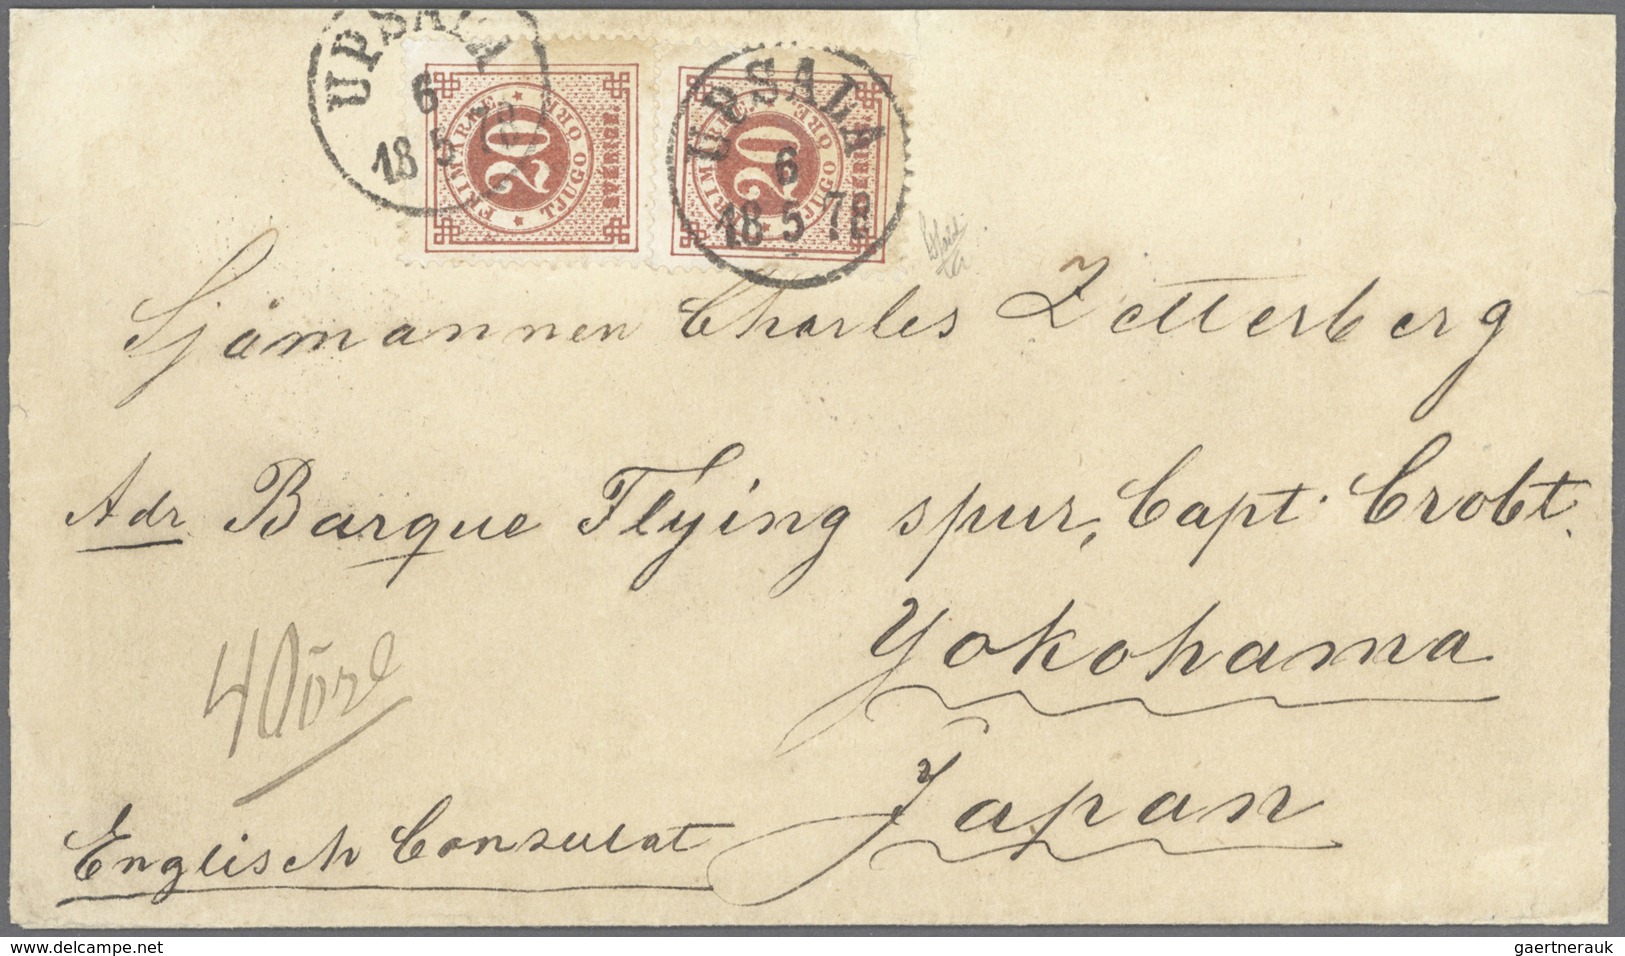 UPSALA
6
18 5 78
FRIMÄRKE
TJUGO ÖRE
20
SVERIGE.
UPSALA
6
18 5 78
FRIMÄRKE
TJUGO ÖRE
20
SVERIGE.
Sjömannen Charles Zetterberg
Adr Barque Flying spur, Capt. Crobt.
Yokohama
40öre
Japan
Englisch Consulat
delcampe.net
gaertnerauk